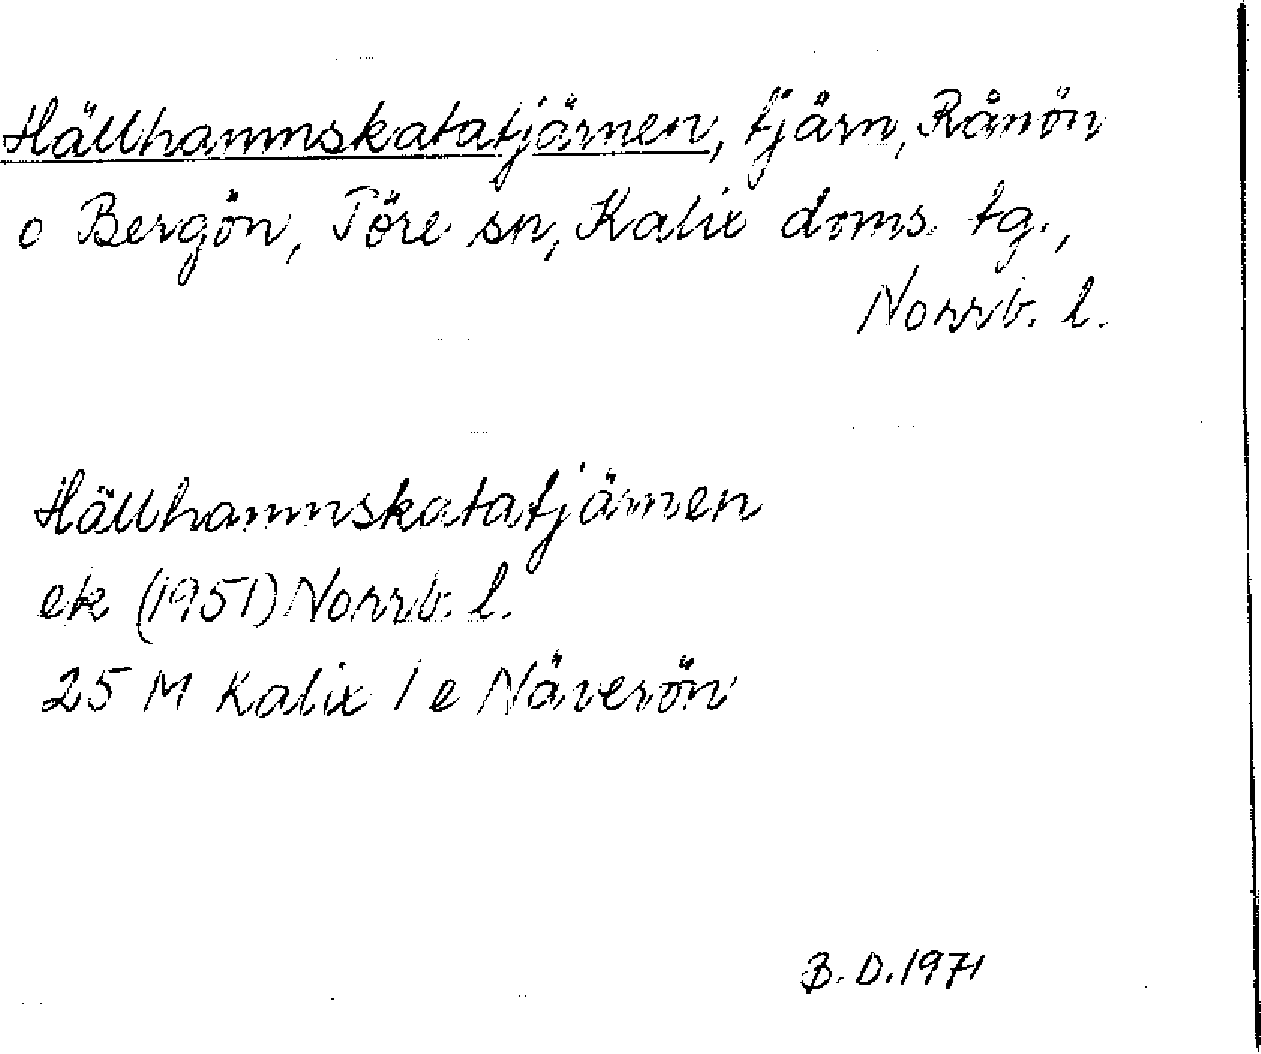 Hällhamnskatatjärnen, tjärn, Rånön
o Bergön, Töre sn, Kalix doms. tg.,
Norrb. l.
Hällhamnskatatjärnen
ek (1951) Norrb. l.
25 M Kalix 1 e Näverön
B. D. 1971